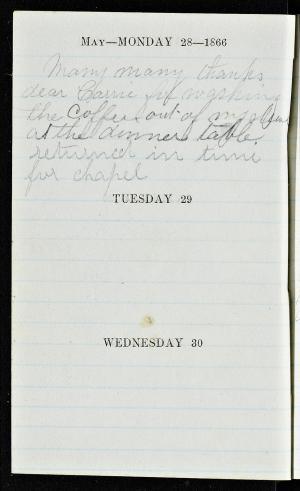 May—MONDAY 28—1866
Many many thanks
dear Carrie for washing
the Coffee out of my
at the dinner table.
returned in time
for chapel
TUESDAY 29
WEDNESDAY 30